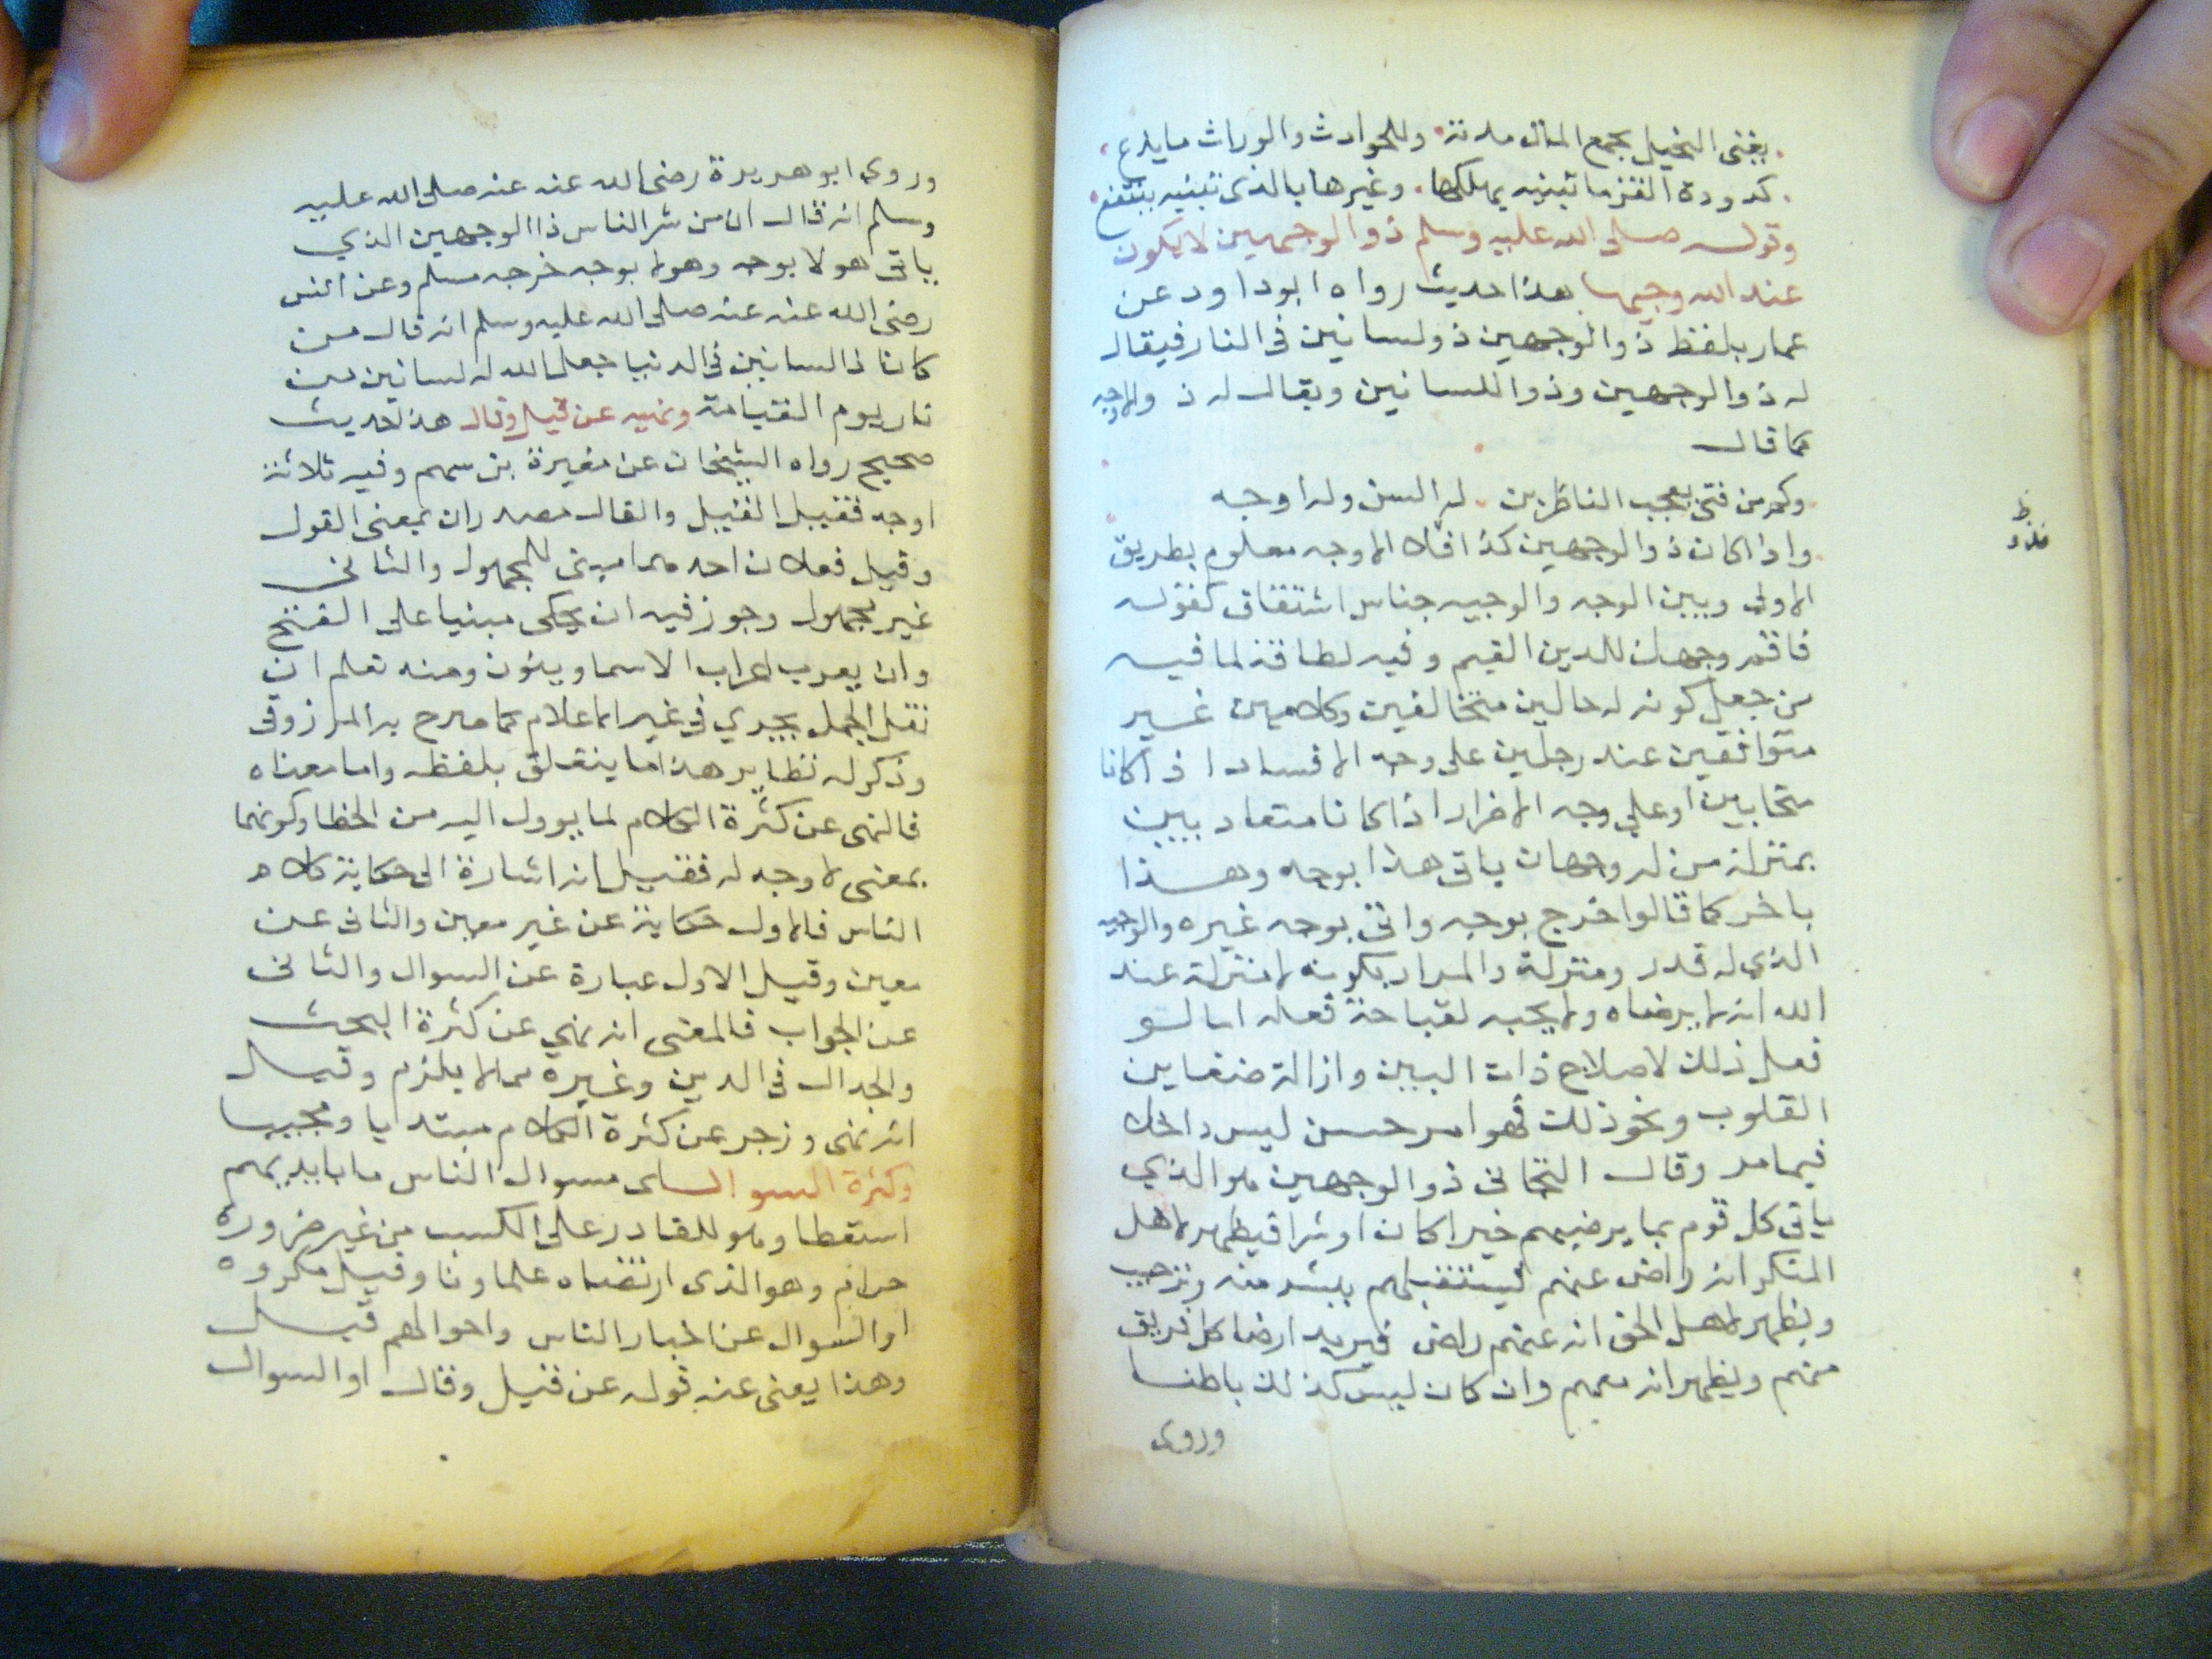 يفنى البخيل بجمع المال مدته وللحوادث والوراث ما يدع
كدودة القز ما تبنيه يهلكها وغيرها بالذي تبنيه ينتفع
وقوله صلى الله عليه وسلم ذو الوجهين لا يكون
عند الله وجيها هذا حديث رواه ابو داود عن
عمار بلفظ ذو الوجهين ذو لسانين في النار فيقال
له ذو الوجهين وذو اللسانين ويقال له ذو الاوجه
كما قال
وكم من فتى يعجب الناظرين له السن وله اوجه
واذا كان ذو الوجهين كذا فلا الاوجه معلوم بطريق
الاولى وبين الوجه والوجيه جناس اشتقاق كقوله
فاقم وجهك للدين القيم وفيه لطافة لما فيه
من جعل كونه له حالين متخالفين وكلامين غير
متوافقين عند رجلين على وجه الافساد اذ اكانا
متحابين او على وجه الاضرار اذا كانا متعاديين
بمنزلة من له وجهان ياتي هذا بوجه وهذا
باخر كما قالوا خرج بوجه واتى بوجه غيره والوجيه
الذي له قدر ومنزلة والمراد بكونه لا منزلة عند
الله انه لا يرضاه ولا يحبه لقباحة فعله اما لو
فعل ذلك لاصلاح ذات البين وازالة ضغاين
القلوب ونحو ذلك فهو امر حسن ليس داخلا
فيما مر وقال ذو الوجهين هو الذي
ياتي كل قوم بما يرضيهم خيرا كان او شرا فيظهر لاهل
المنكر انه راض عنهم فيستقبلهم ببشر منه وترحيب
ويظهر لاهل الحق انه عنهم راض فيريد ارضا كل فريق
منهم ويظهر انه معهم وان كان ليس كذلك باطنا
وروى
وروي ابو هريرة رضى الله عنه عنه صلى الله عليه
وسلم انه قال ان من شر الناس ذا الوجهين الذي
ياتي هولا بوجه وهولا بوجه خرجه مسلم وعن انس
رضى الله عنه عنه صلى الله عليه وسلم انه قال من
كان ذا لسانين في الدنيا جعل الله له لسانين من
نار يوم القيامة ونهيه عن قيل وقال هذا حديث
صحيح رواه الشيخان عن مغيرة بن وفيه ثلاثة
اوجه فقيل القيل والقال مصدران بمعنى القول
وقيل فعلان احدهما مبني للمجهول والثاني
غير مجهول وجوز فيه ان يحكى مبنيا على الفتح
وان يعرب اعراب الاسما وينون ومنه تعلم ان
نقل الجمل يجري في غير الاعلام كما صرح به المرزوقي
وذكر له نظاير هذا ما يتعلق بلفظه واما معناه
فالنهى عن كثرة الكلام لما يوول اليه من الخطا وكونهما
بمعنى لا وجه له فقيل انه اشارة الى حكاية كلام
الناس فالاول حكاية عن غير معين والثاني عن
معين وقيل الاول عبارة عن السوال والثاني
عن الجواب فالمعنى انه نهي عن كثرة البحث
والجدال في الدين وغيره مما لا يلزم وقيل
انه نهى وزجر عن كثرة الكلام مبتديا ومجيبا
وكثرة السوال اى سوال الناس ما بايديهم
استعطا وهو للقادر على الكسب من غير ضرورة
حرام وهو الذي ارتضاه علماونا وقيل مكروه
او السوال عن اخبار الناس واحوالهم قيل
وهذا يغني عنه قوله عن قيل وقال او السوال